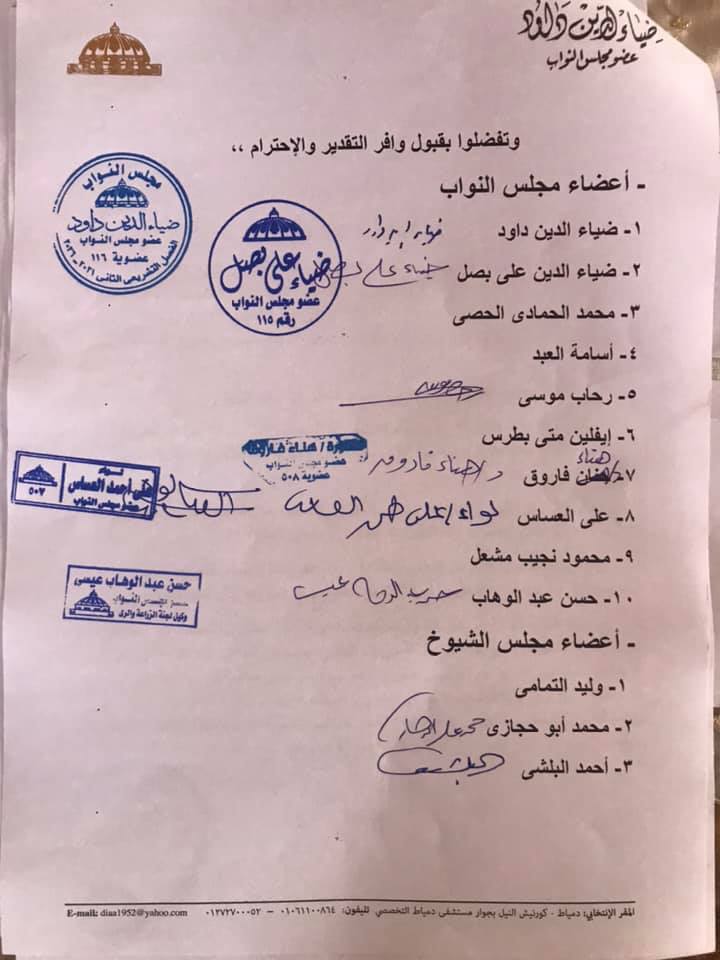 ضياء الدين داود
عضو مجلس النواب
وتفضلوا بقبول وافر التقدير والإحترام ،،
مجلس النواب
ضياء الدين داود
عضو مجلس النواب
عضوية ١١٦
الفصل التشريعى الثانى ٢٠٢١-٢٠٢٦
ضياء على بصل
عضو مجلس النواب
رقم ١١٥
- أعضاء مجلس النواب
١- ضياء الدين داود
٢- ضياء الدين على بصل ضياء على بصل
٣- محمد الحمادى الحصى
٤- أسامة العبد
٥- رحاب موسى
٦- إيفلين متى بطرس
٧- هناء فاروق د/هناء فاروق
هناء فاروق
عضو مجلس النواب
عضوية ٥٠٨
٨- على العساس لواء/على
لواء
أحمد العساس
عضو مجلس النواب
٥٠٧
٩- محمود نجيب مشعل
١٠- حسن عبد الوهاب
حسن عبد الوهاب عيسى
عضو مجلس النواب
وكيل لجنة الزراعة والرى
- أعضاء مجلس الشيوخ
١- وليد التمامى
٢- محمد أبو حجازى
٣- أحمد البلشى
المقر الإنتخابي: دمياط - كورنيش النيل بجوار مستشفى دمياط التخصصي تليفون: ٠١٠٦١١٠٠٨٦٤ - ٠١٢٧٢٧٠٠٠٥٢ E-mail: diaa1952@yahoo.com